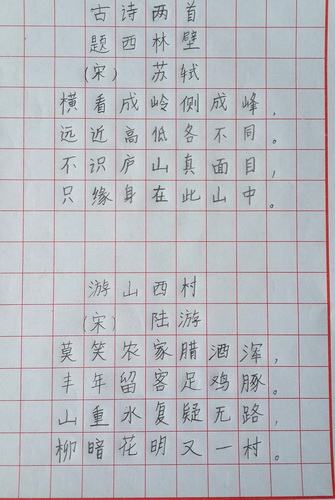 古诗两首
题西林壁
(宋) 苏轼
横看成岭侧成峰,
远近高低各不同。
不识庐山真面目,
只缘身在此山中。
游山西村
(宋) 陆游
莫笑农家腊酒浑,
丰年留客足鸡豚。
山重水复疑无路,
柳暗花明又一村。